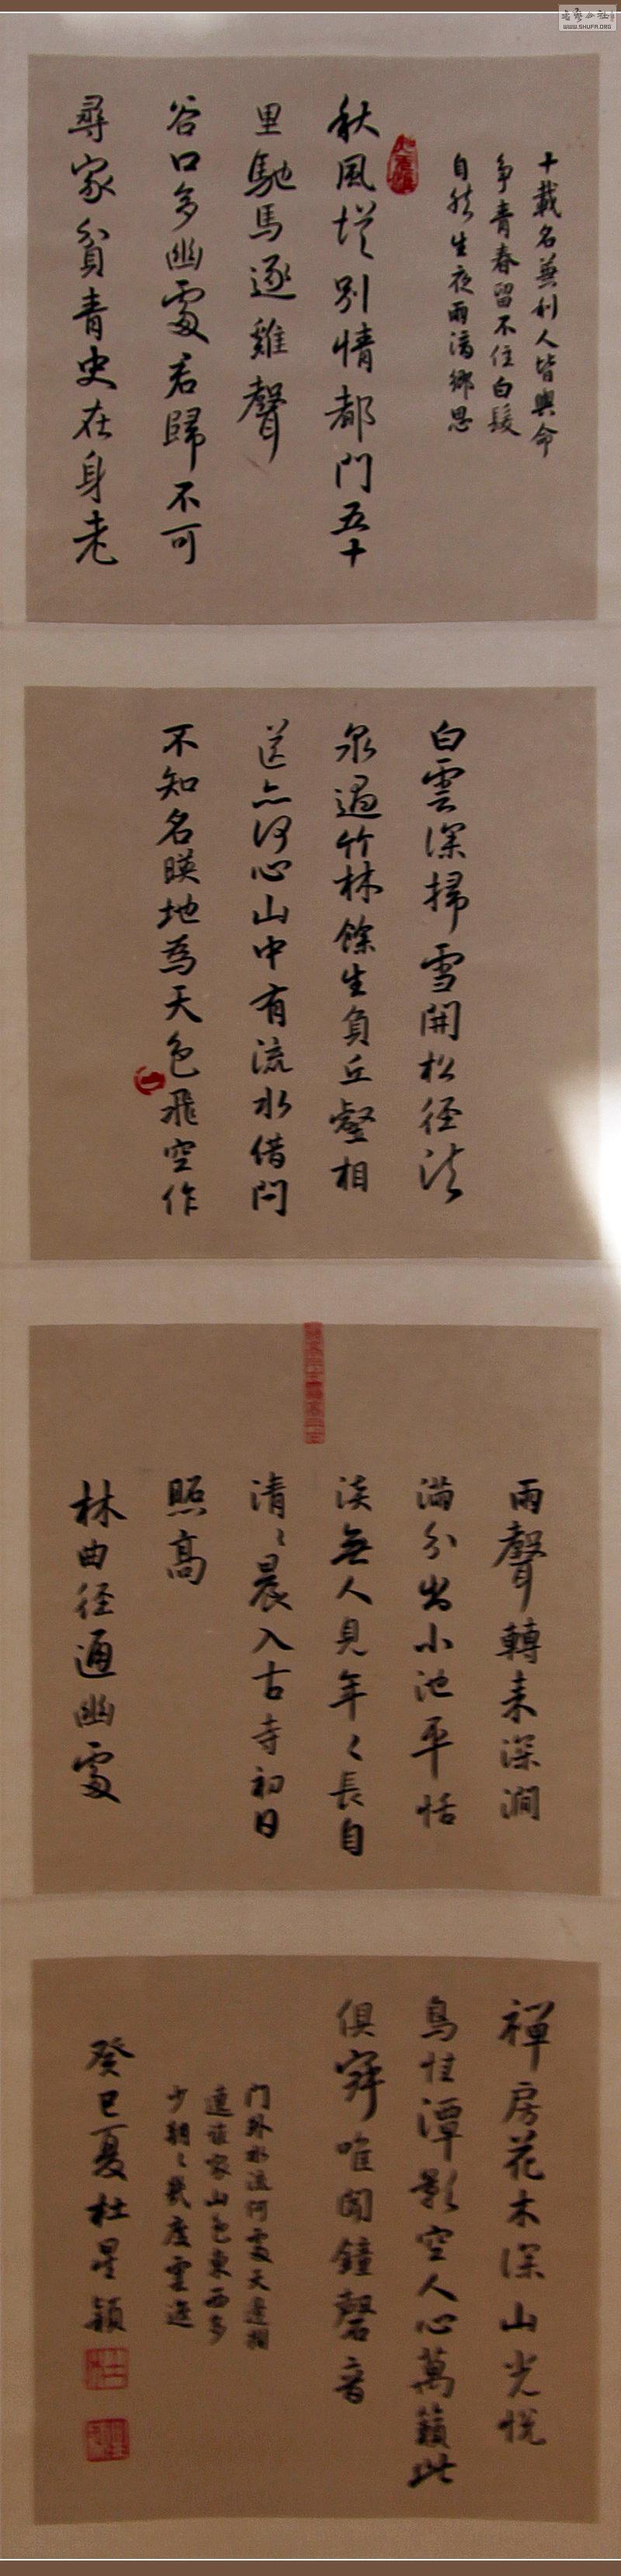 十載名兼利人皆與命
爭青春留不住白髮
自然生夜雨滴鄉思
秋風從別情都門五十
里馳馬逐雞聲
谷口多幽處君歸不可
尋家貧青史在身老
白雲深掃雪開松徑
泉過竹林餘生負丘壑相
送亦何心山中有流水借問
不知名暎地為天色飛空作
雨聲轉来深澗
滿分出小池平恬
淡無人見年〻長自
清〻晨入古寺初日
照高
林曲徑通幽處
禅房花木深山光悅
鳥性潭影空人心萬籟此
俱寂唯聞鐘磬音
门外水流何處天邊樹
遶誰家山色東西多
少朝〻幾度雲遮
癸巳夏杜星穎
WWW.SHUFA.ORG